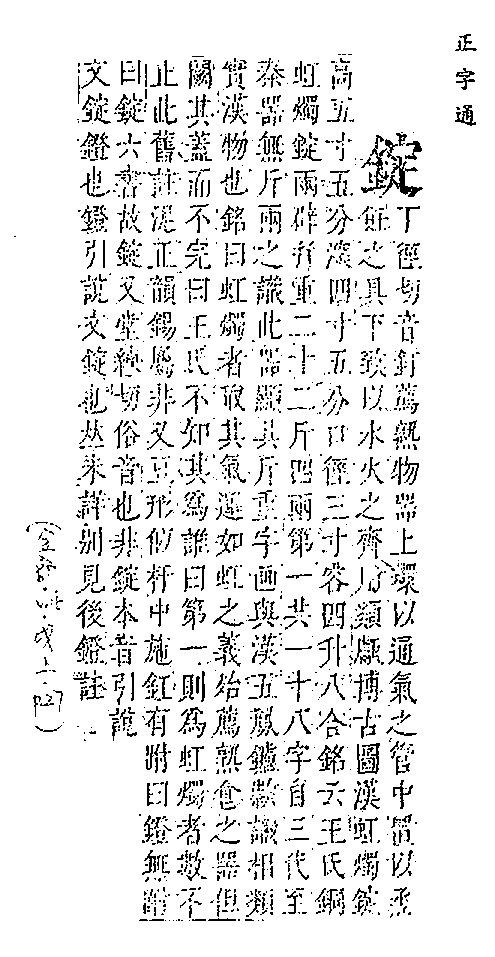 正字通
錠
丁徑切音釘薦熟物器上環以通氣之管中置以烝
飪之具下致以水火之齊用類甗博古圖漢虹燭錠
高五寸五分深四寸五分口徑三寸容四升八合銘云王氏銅
虹燭錠兩辟并重二十二斤四兩第一共一十八字自三代至
秦器無斤兩之識此器顯其斤重字画與漢五鳳鑪數識相類
實漢物也銘曰虹燭者取其氣運如虹之義始薦熟食之器但
闕其蓋而不完曰王氏不知其爲誰曰第一則爲虹燭者數不
止此舊註混正韻錫屬非又豆形似杅中施釭有跗曰鐙無跗
曰錠六書故錠又堂練切俗音也非錠本音引說
文錠鐙也鐙引說文錠也丛未詳別見後鐙註